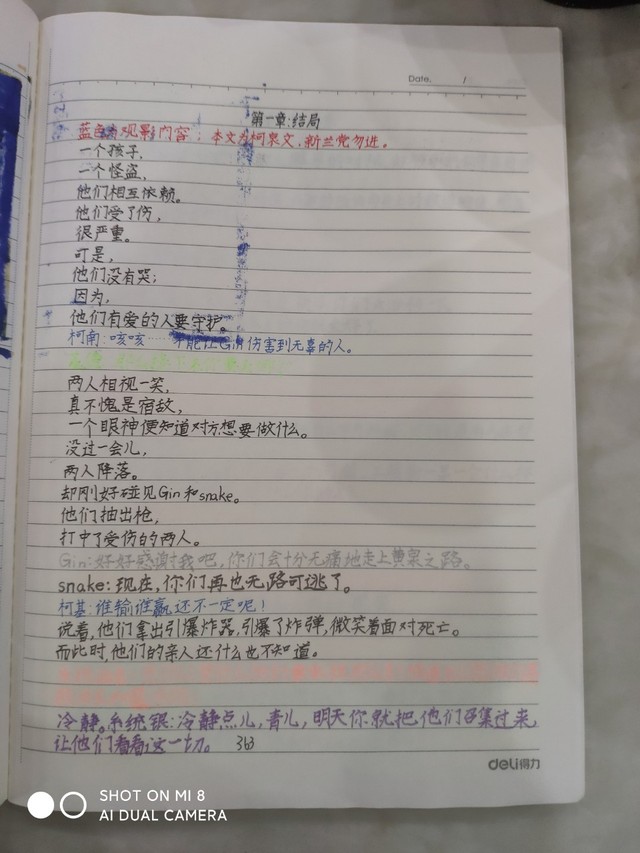 Date. /
第一章:结局
蓝色为观影内容; 本文为柯哀文,新兰党勿进。
一个孩子,
一个怪盗,
他们相互依赖。
他们受了伤,
很严重。
可是,
他们没有哭;
因为,
他们有爱的人要守护。
柯南:咳咳……不能让Gin伤害到无辜的人。
两人相视一笑,
真不愧是宿敌,
一个眼神便知道对方想要做什么。
没过一会儿,
两人降落。
却刚好碰见Gin和snake。
他们抽出枪,
打中了受伤的两人。
Gin:好好感谢我吧,你们会十分无痛地走上黄泉之路。
snake:现在,你们再也无路可逃了。
柯基:谁输谁赢还不一定呢!
说着,他们拿出引爆炸器,引爆了炸弹,微笑着面对死亡。
而此时,他们的亲人还什么也不知道。
冷静。系统银:冷静点儿,青儿,明天你就把他们召集过来,
让他们看看这一切。 363
deli得力
SHOT ON MI 8
AI DUAL CAMERA